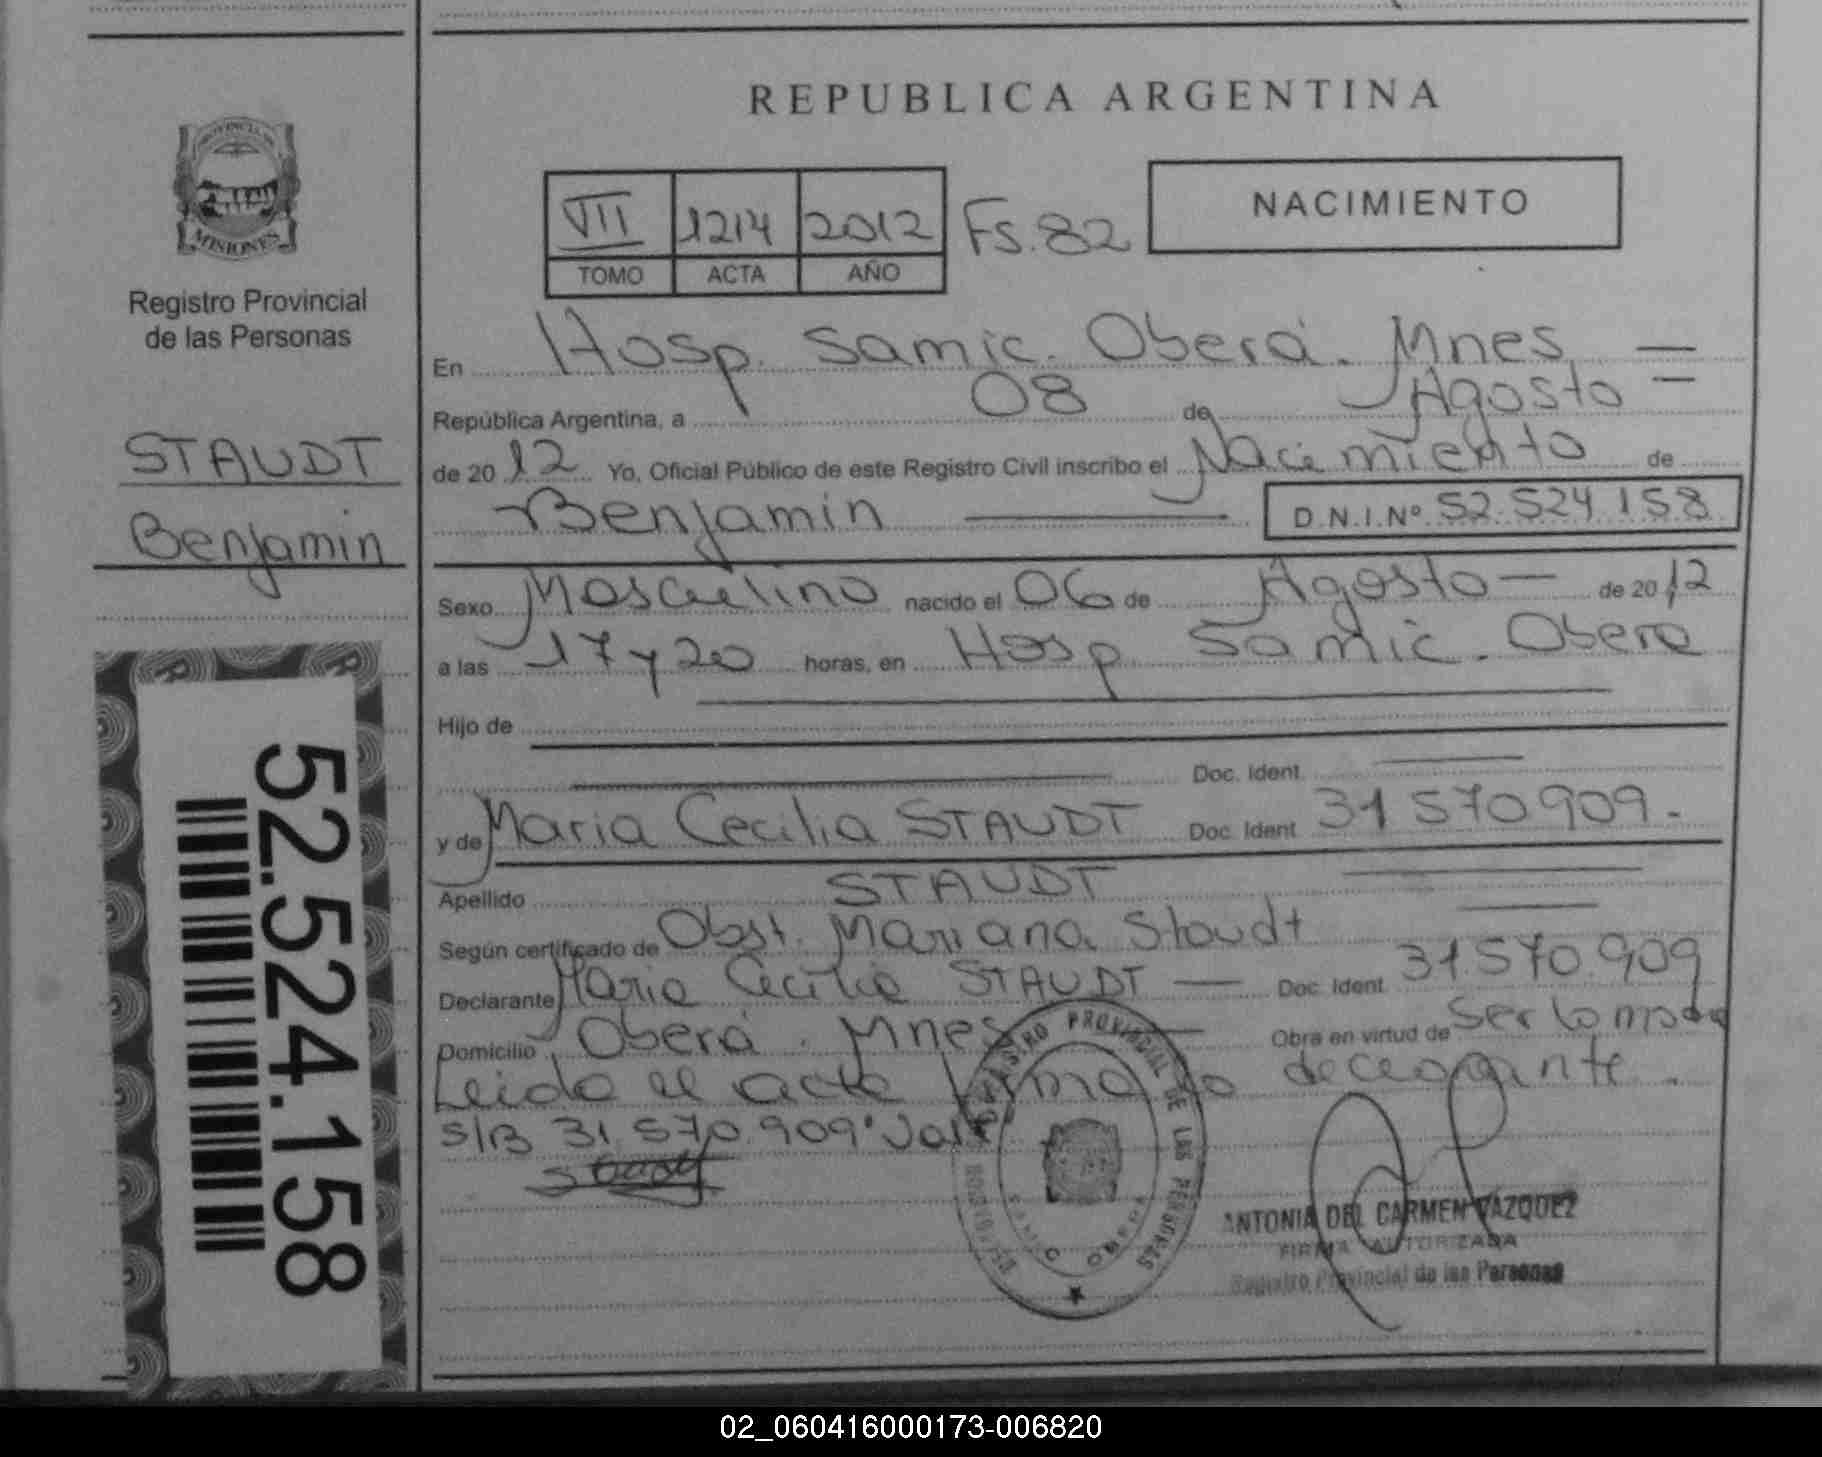 REPUBLICA ARGENTINA
PROVINCIA DE
MISIONES
Registro Provincial
de las Personas
STAUDT
Benjamin
52.524.158
VII 1214 2012 Fs. 82
TOMO ACTA AÑO
NACIMIENTO
En Hosp. Samic. Oberá. Mnes
República Argentina, a 08 de Agosto
de 2012 Yo, Oficial Público de este Registro Civil inscribo el Nacimiento de
Benjamin D.N.I.Nº 52.524.158
Sexo Masculino nacido el 06 de Agosto de 2012
a las 17 y 20 horas, en Hosp. Samic. Obera
Hijo de
Doc. Ident.
y de Maria Cecilia STAUDT Doc. Ident 31570909.
Apellido STAUDT
Según certificado de Obst. Mariana Staudt
Declarante Maria Cecilia STAUDT Doc. Ident. 31.570.909
Domicilio Oberá. Mnes Obra en virtud de Ser la madre
Leido el acta firma la
S/B 31.570.909
REGISTRO PROVINCIAL DE LAS PERSONAS
SAMIC OBERA
ANTONIA DEL CARMEN VAZQUEZ
FIRMA AUTORIZADA
Registro Provincial de las Personas
02_060416000173-006820